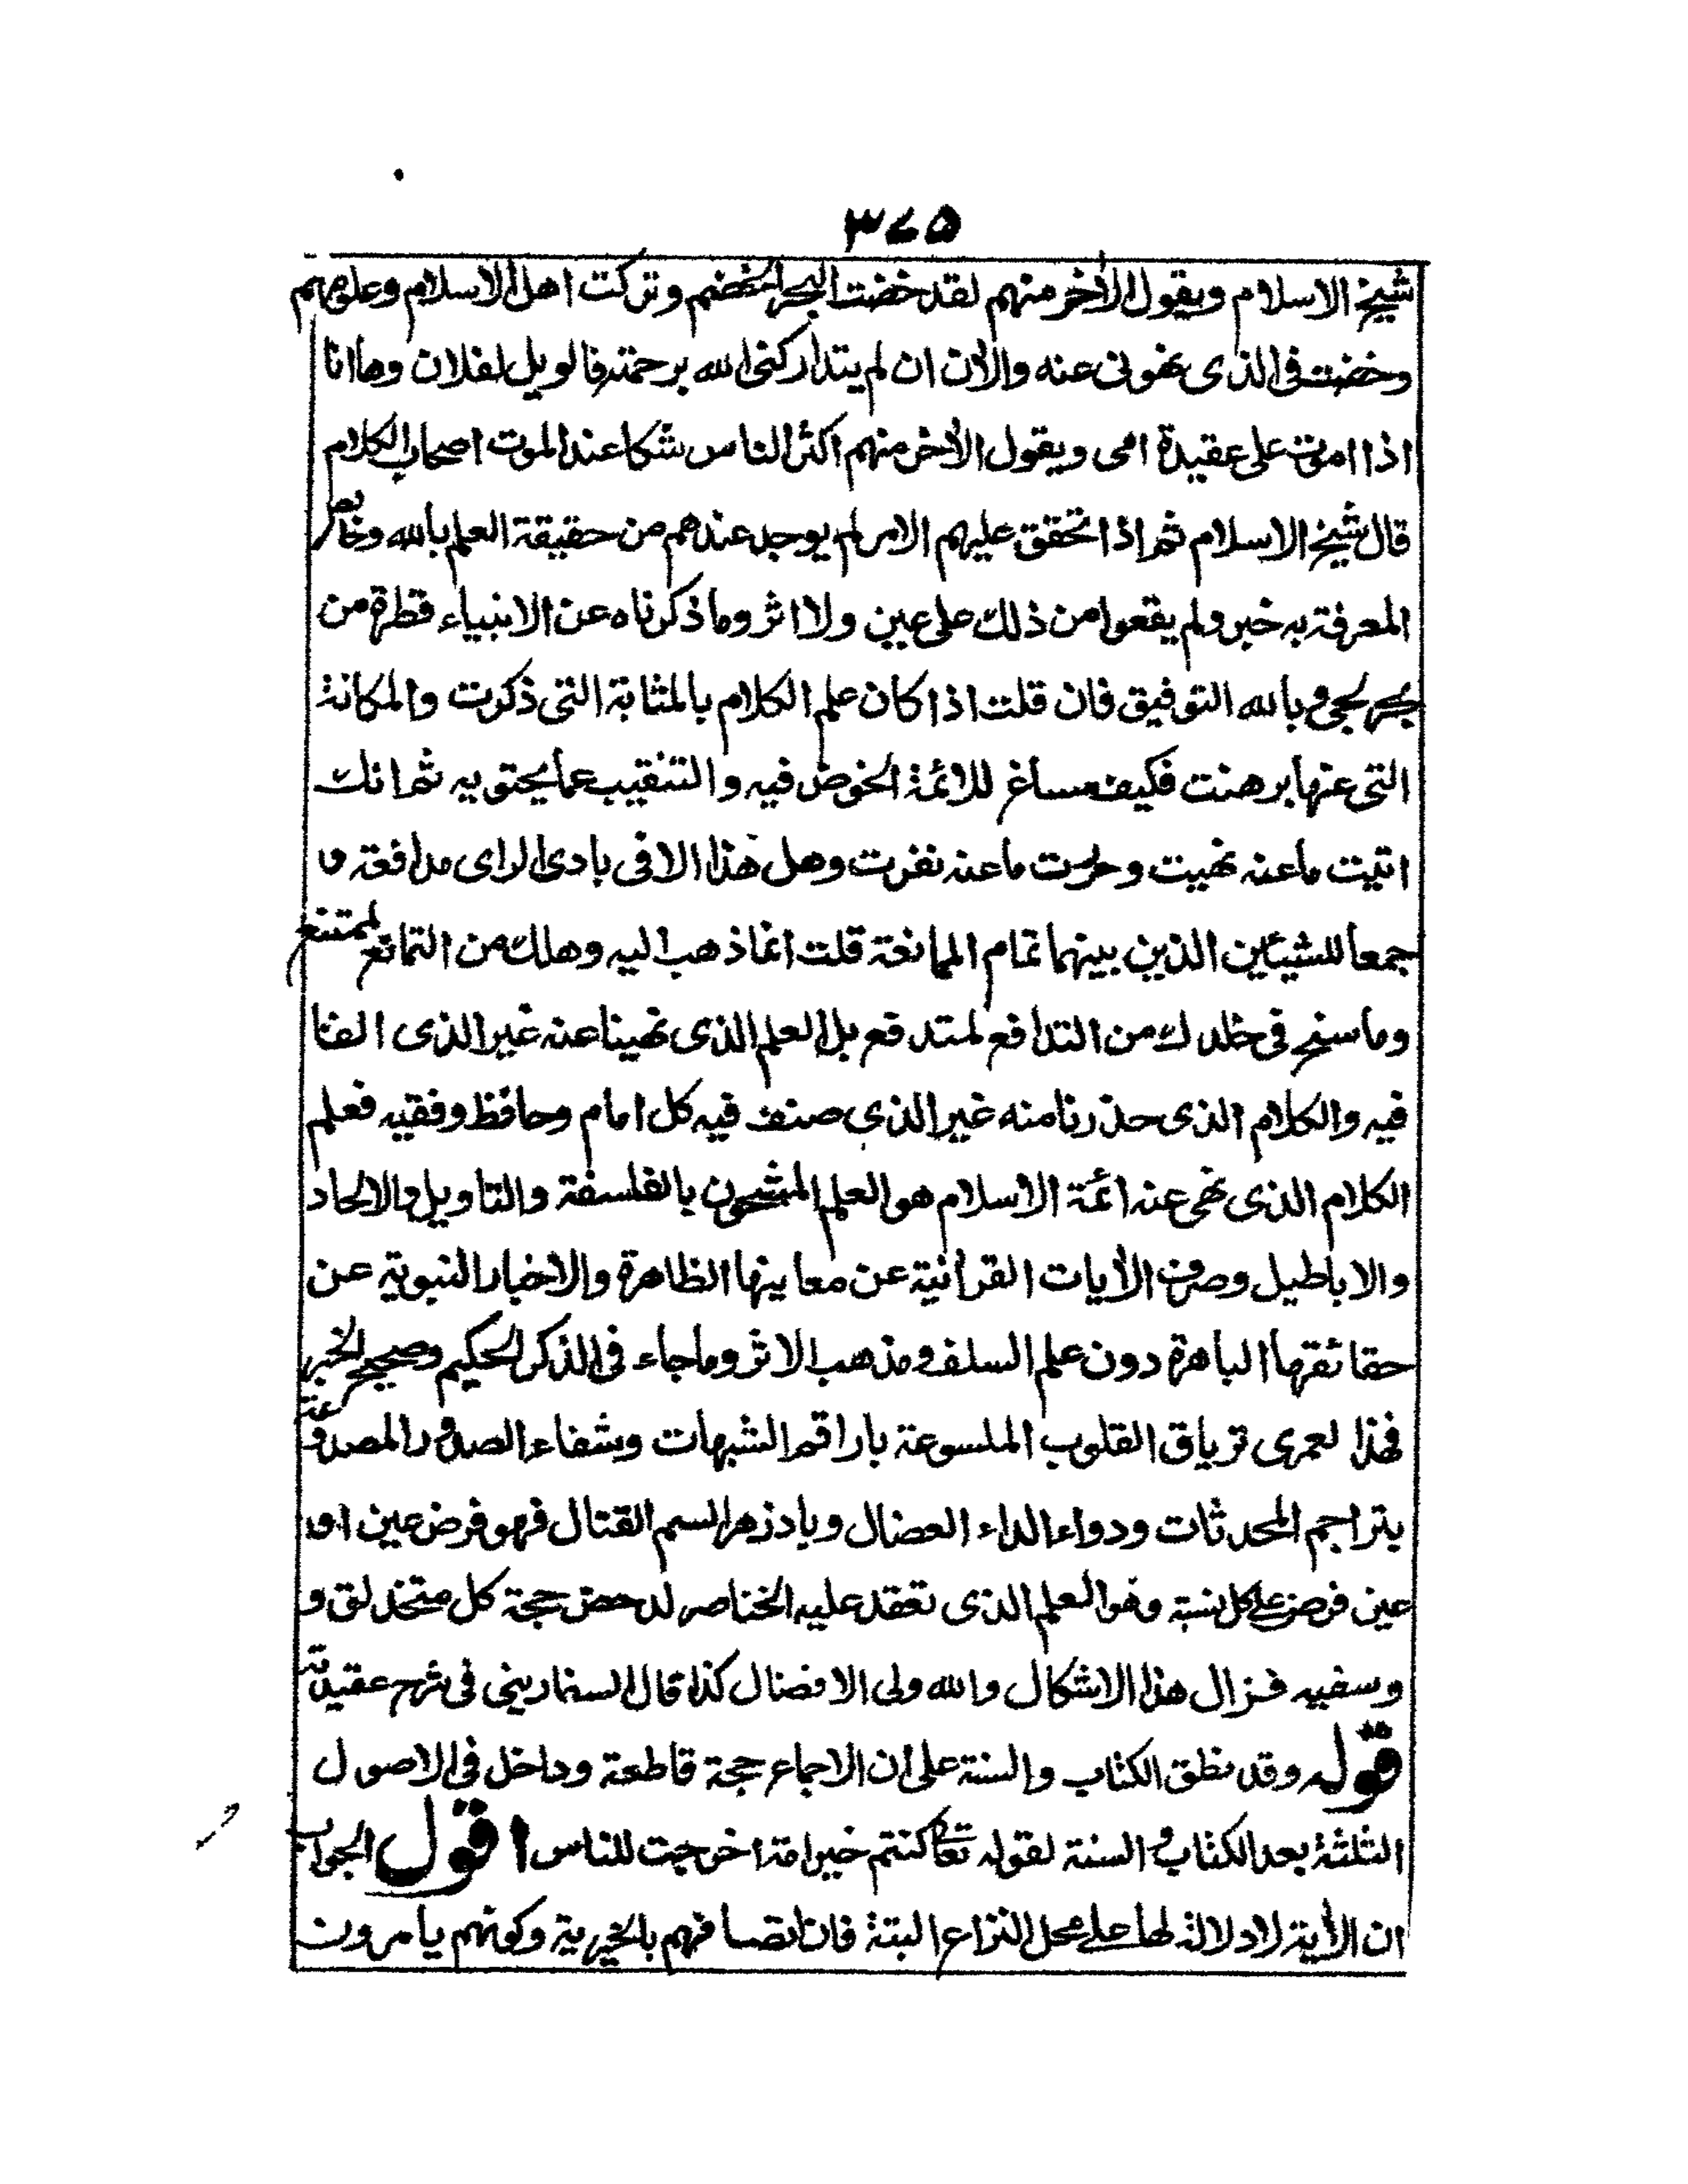 ٣٧٥
شيخ الاسلام ويقول الأخر منهم لقد خضت البحر الخضم وتركت اهل الاسلام وعلومهم
وخضت فى الذى نهونى عنه والأن ان لم يتداركنى الله برحمته فالويل لفلان وها انا
اذا اموت على عقيدة امى ويقول الأخر منهم اكثر الناس شكا عند الموت اصحاب الكلام
قال شيخ الاسلام ثم اذا تحقق عليهم الامر لم يوجد عندهم من حقيقة العلم بالله وخالص
المعرفة به خبر ولم يقعوا من ذلك على عين ولا اثر وما ذكرناه عن الانبياء قطرة من
بحر لجى وبالله التوفيق فان قلت اذا كان علم الكلام بالمثابة التى ذكرت والمكانة
التى عنها برهنت فكيف مساغ للائمة الخوض فيه والتنقيب عما يحتويه ثم انك
اتيت ما عنه نهيت وحررت ما عنه نفرت وهل هذا الا فى بادى الراى مدافعة و
جمعا للشيئين الذين بينهما تمام الممانعة قلت انما ذهب اليه وهلك من التمانع لممتنع
وما سنح فى خلدك من التدافع لمندفع بل العلم الذى نهينا عنه غير الذى الفنا
فيه والكلام الذى حذرنا منه غير الذى صنف فيه كل امام وحافظ وفقيه فعلم
الكلام الذى نهى عنه ائمة الاسلام هو العلم المشحون بالفلسفة والتاويل والالحاد
والاباطيل وصرف الأيات القرأنية عن معانيها الظاهرة والاخبار النبوية عن
حقائقها الباهرة دون علم السلف ومذهب الاثر وما جاء فى الذكر الحكيم وصحيح الخبر
فهذا لعمرى ترياق القلوب الملسوعة باراقم الشبهات وشفاء الصدور المصدوعة
بتراجم المحدثات ودواء الداء العضال وبادزهر السم القتال فهو فرض عين او
عين فرض على كل نسبة وهو العلم الذى تعقد عليه الخناصر لدحض حجة كل متحذلق و
وسفيه فزال هذا الاشكال والله ولى الافضال كذا قال السفارينى فى شرح عقيدته
قوله وقد نطق الكتاب والسنة على ان الاجماع حجة قاطعة وداخل فى الاصول
الثلثة بعد الكتاب والسنة لقوله تعا كنتم خير امة اخرجت للناس اقول الجواب
ان الأية لا دلالة لها على محل النزاع البتة فان اتصافهم بالخيرية وكونهم يامرون